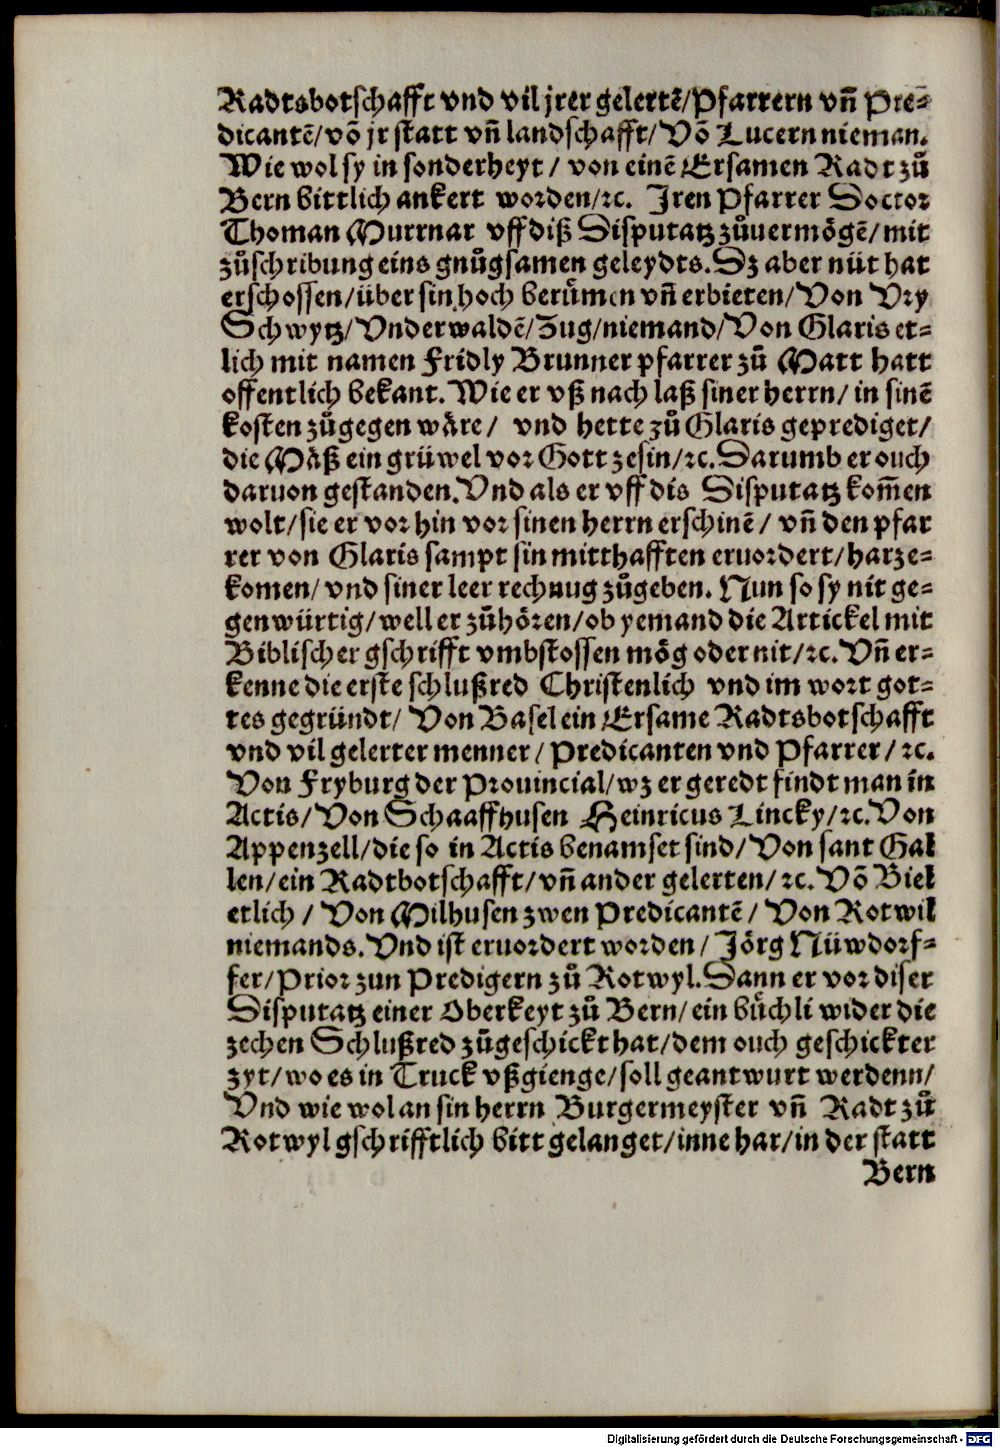 Radtsbotschafft vnd vil jrer gelertē/Pfarrern vn̄ Pre⸗
dicantē/vō jr statt vn̄ landschafft/Vō Lucern nieman.
Wie wol sy in sonderheyt / von einē Ersamen Radt zů
Bern bittlich ankert worden/ꝛc. Iren Pfarrer Doctor
Thoman Murrnar vff diß Disputatz zůuermögē/mit
zůschribung eins gnůgsamen geleydts. Dz aber nüt hat
erschossen/über sin hoch berümen vn̄ erbieten/Von Vry
Schwytz/Vnderwaldē/Zug/niemand/Von Glaris et⸗
lich mit namen Fridly Brunner pfarrer zů Matt hatt
offentlich bekant. Wie er vß nach laß siner herrn/ in sinē
kosten zůgegen wäre / vnd hette zů Glaris geprediget/
die Mäß ein grüwel vor Gott zesin/ꝛc. Darumb er ouch
daruon gestanden. Vnd als er vff dis Disputatz kom̄en
wolt/sie er vor hin vor sinen herrn erschinē / vn̄ den pfar
rer von Glaris sampt sin mitthafften eruordert/harze⸗
komen/ vnd siner leer rechnug zůgeben. Nun so sy nit ge⸗
genwürtig/well er zůhören/ob yemand die Artickel mit
Biblischer gschrifft vmbstossen mög oder nit/ꝛc. Vn̄ er⸗
kenne die erste schlußred Christenlich vnd im wort got⸗
tes gegründt/ Von Basel ein Ersame Radtsbotschafft
vnd vil gelerter menner / Predicanten vnd Pfarrer / ꝛc.
Von Fryburg der Prouincial/wz er geredt findt man in
Actis/ Von Schaaffhusen Heinricus Lincky/ꝛc. Von
Appenzell/die so in Actis benamset sind/ Von sant Gal
len/ein Radtbotschafft/vn̄ ander gelerten/ꝛc. Vō Biel
etlich / Von Milhusen zwen Predicantē / Von Rotwil
niemands. Vnd ist eruordert worden / Jörg Nüwdorf⸗
fer/Prior zun Predigern zů Rotwyl. Dann er vor diser
Disputatz einer Oberkeyt zů Bern/ ein büchli wider die
zechen Schlußred zůgeschickt hat/dem ouch geschickter
zyt/wo es in Truck vßgienge/soll geantwurt werdenn/
Vnd wie wol an sin herrn Burgermeyster vn̄ Radt zů
Rotwyl gschrifftlich bitt gelanget/inne har/in der statt
Bern
Digitalisierung gefördert durch die Deutsche Forschungsgemeinschaft - DFG